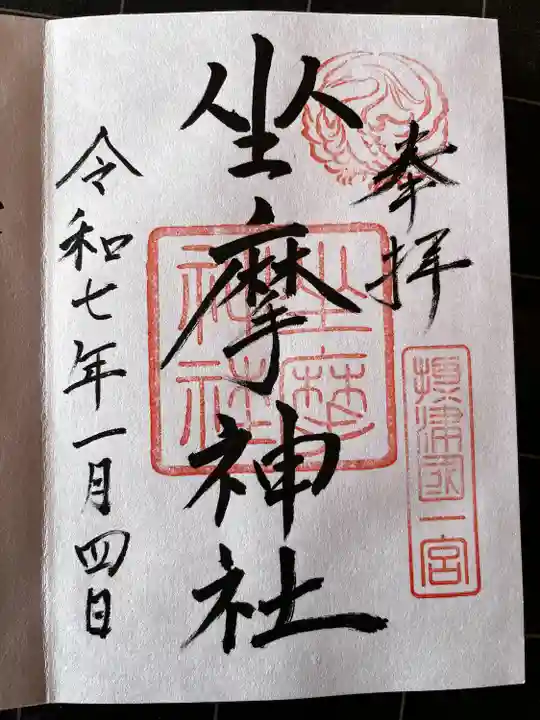 奉拝
摂津国一宮
坐摩神社
坐摩神社
令和七年一月四日